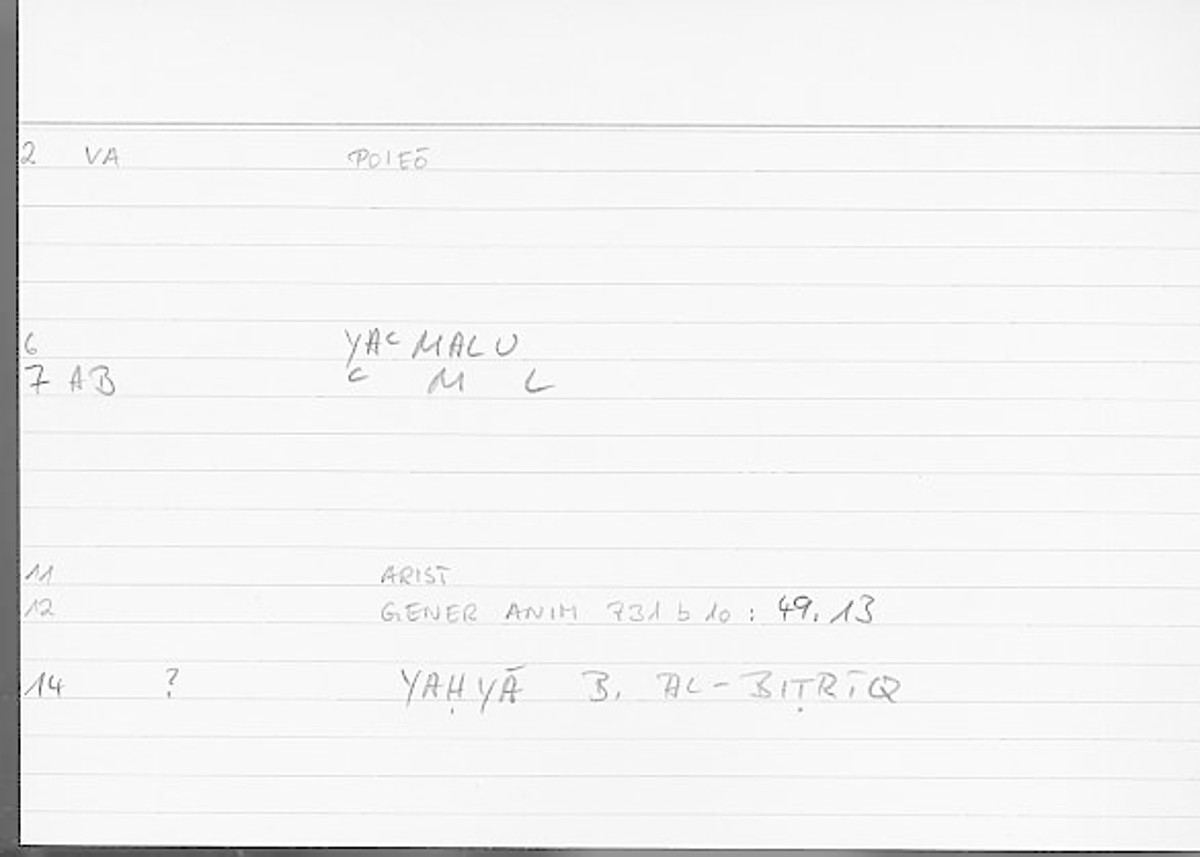 2 VA POIEŌ
6 YAᶜMALU
7 AB ᶜ M L
11 ARIST
12 GENER ANIM 731 b 10 : 49.13
14 ? YAḤYĀ B. AL-BIṬRĪQ